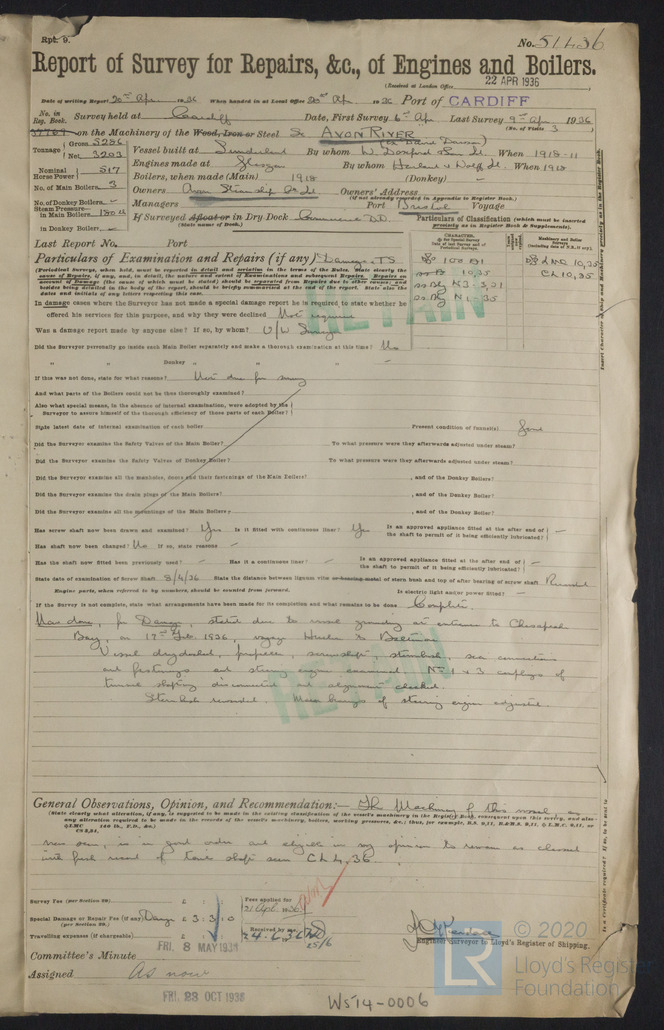 Rpt. 9.
No. 51436
Report of Survey for Repairs, &c., of Engines and Boilers.
(Received at London Office 22 APR 1936)
Date of writing Report 20th Apr 1936 When handed in at Local Office 20th Apr 1936 Port of CARDIFF
No. in Reg. Book. Survey held at Cardiff Date, First Survey 6th Apr Last Survey 9th Apr 1936
(No. of Visits 3)
on the Machinery of the Wood, Iron or Steel Sc AVON RIVER
Tonnage Gross 5286 Net 3203
Vessel built at Sunderland By whom W. Doxford & Sons Ld. When 1918-11
Nominal Horse Power 517
Engines made at Glasgow By whom Harland & Wolff Ld. When 1918
No. of Main Boilers 3
Boilers, when made (Main) 1918 (Donkey) –
No. of Donkey Boilers –
Owners Avon Steamship Co Ld. Owners' Address
(if not already recorded in Appendix to Register Book.)
Steam Pressure in Main Boilers 180 lb
Managers Port Bristol Voyage
in Donkey Boilers –
If Surveyed Afloat or in Dry Dock Commercial D.D.
(State name of Dock.)
Particulars of Classification (which must be inserted precisely as in Register Book & Supplements).
Last Report No. Port
Particulars of Examination and Repairs (if any) Damage, TS
(Periodical Surveys, when held, must be reported in detail and seriatim in the terms of the Rules. State clearly the cause of Repairs, if any, and, in detail, the nature and extent of Examinations and subsequent Repairs. Repairs on account of Damage (the cause of which must be stated) should be separated from Repairs due to other causes; and besides being detailed in the body of the report, should be briefly summarised at the end of the report. State also the dates and initials of any letters respecting this case.
100 A1
10,35
LMC 10,35
CL 10,35
RETAIN
In damage cases where the Surveyor has not made a special damage report he is required to state whether he
offered his services for this purpose, and why they were declined Not required
Was a damage report made by anyone else? If so, by whom? U/W Surveyor
Did the Surveyor personally go inside each Main Boiler separately and make a thorough examination at this time? No
" " Donkey " " " –
If this was not done, state for what reasons? Not due for survey
And what parts of the Boilers could not be thus thoroughly examined?
Also what special means, in the absence of internal examination, were adopted by the Surveyor to assure himself of the thorough efficiency of those parts of each Boiler?
State latest date of internal examination of each boiler Present condition of funnel(s) Good
Did the Surveyor examine the Safety Valves of the Main Boiler? To what pressure were they afterwards adjusted under steam?
Did the Surveyor examine the Safety Valves of Donkey Boiler? To what pressure were they afterwards adjusted under steam?
Did the Surveyor examine all the manholes, doors and their fastenings of the Main Boilers? , and of the Donkey Boiler?
Did the Surveyor examine the drain plugs of the Main Boilers? , and of the Donkey Boiler?
Did the Surveyor examine all the mountings of the Main Boilers? , and of the Donkey Boiler?
Has screw shaft now been drawn and examined? Yes Is it fitted with continuous liner? Yes Is an approved appliance fitted at the after end of the shaft to permit of it being efficiently lubricated? –
Has shaft now been changed? No If so, state reasons –
Has the shaft now fitted been previously used? – Has it a continuous liner? – Is an approved appliance fitted at the after end of the shaft to permit of it being efficiently lubricated? –
State date of examination of Screw Shaft 8/4/36 State the distance between lignum vitæ or bearing metal of stern bush and top of after bearing of screw shaft Rewooded
Engine parts, when referred to by numbers, should be counted from forward. Is electric light and/or power fitted? –
If the Survey is not complete, state what arrangements have been made for its completion and what remains to be done Complete.
Now done, for Damage, stated due to vessel grounding at entrance to Chesapeake
Bay, on 17th Feb. 1936, voyage to Baltimore
Vessel drydocked, propeller, screwshaft, sternbush, sea connections
and fastenings and steering engine examined. Nos 1 & 3 couplings of
tunnel shafting disconnected and alignment checked.
Sternbush rewooded. Main bearings of steering engine adjusted.
RETAIN
General Observations, Opinion, and Recommendation:— The Machinery of this vessel as
(State clearly what alteration, if any, is suggested to be made in the existing classification of the vessel's machinery in the Register Book, consequent upon this survey, and also any alteration required to be made in the records of the vessel's machinery, boilers, working pressures, &c.; thus, for example, B.S. 9,11, B.&M.S. 9,11, or L.M.C. 9,11, or
now seen, is in good order and eligible in my opinion to remain as classed
with fresh record of tail shaft seen CL 4,36
Survey Fee (per Section 29) £ : :
Special Damage or Repair Fee (if any) Damage £ 3 : 3 : 0
(per Section 29.)
Travelling expenses (if chargeable) £ : :
Fees applied for 21 Apl 1936
Received by me, 24.6.36
25/6
Engineer Surveyor to Lloyd's Register of Shipping.
FRI. 8 MAY 1936
Committee's Minute
Assigned As now
FRI. 23 OCT 1936
W514-0006
© 2020
LR
Lloyd's Register
Foundation